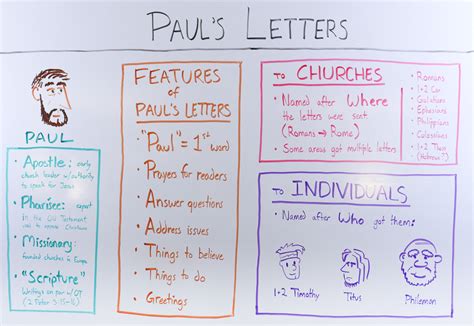 PAUL'S LETTERS
PAUL
• Apostle: early
church leader w/authority
to speak for Jesus
• Pharisee: expert
in the Old Testament
used to oppose Christians
• Missionary:
founded churches in Europe
• "Scripture"
Writings on par w/OT
(2 Peter 3:15-16)
FEATURES
of
PAUL'S LETTERS
• "Paul" = 1st
word
• Prayers for readers
• Answer questions
• Address issues
• Things to believe
• Things to do
• Greetings
to CHURCHES
• Named after Where
the letters were sent
(Romans → Rome)
• Some areas got multiple letters
• Romans
• 1+2 Cor
• Galatians
• Ephesians
• Philippians
• Colossians
• 1+2 Thess
• (Hebrews?)
to INDIVIDUALS
• Named after Who got them:
1+2 Timothy
Titus
Philemon